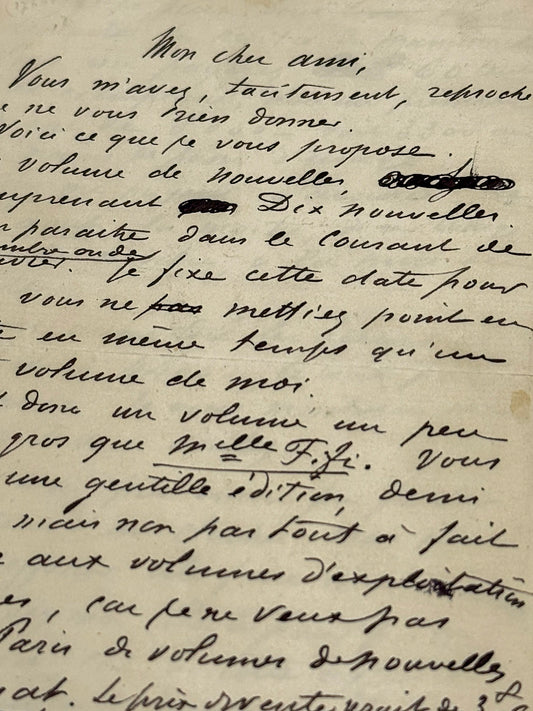 Mon cher ami,
Vous m'avez, tacitement, reproché
ne vous rien donner.
Voici ce que je vous propose.
volume de nouvelles,
Dix nouvelles
paraitre dans le courant de
Je fixe cette date pour
vous ne pas mettiez point en
en même temps qu'un
volume de moi.
donc un volume un peu
gros que Mlle Fifi. Vous
une gentille édition, demi
mais non pas tout à fait
aux volumes d'exploitation
car je ne veux pas
Paris de volumes de nouvelles
Le prix de vente serait de 3 f